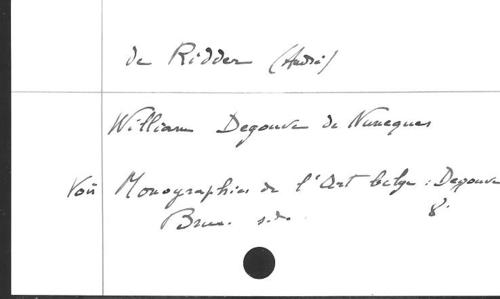 de Ridder (André)
William Degouve de Nuncques
Voir Monographies de l'Art belge : Degouve
Brux. s.d. 8°